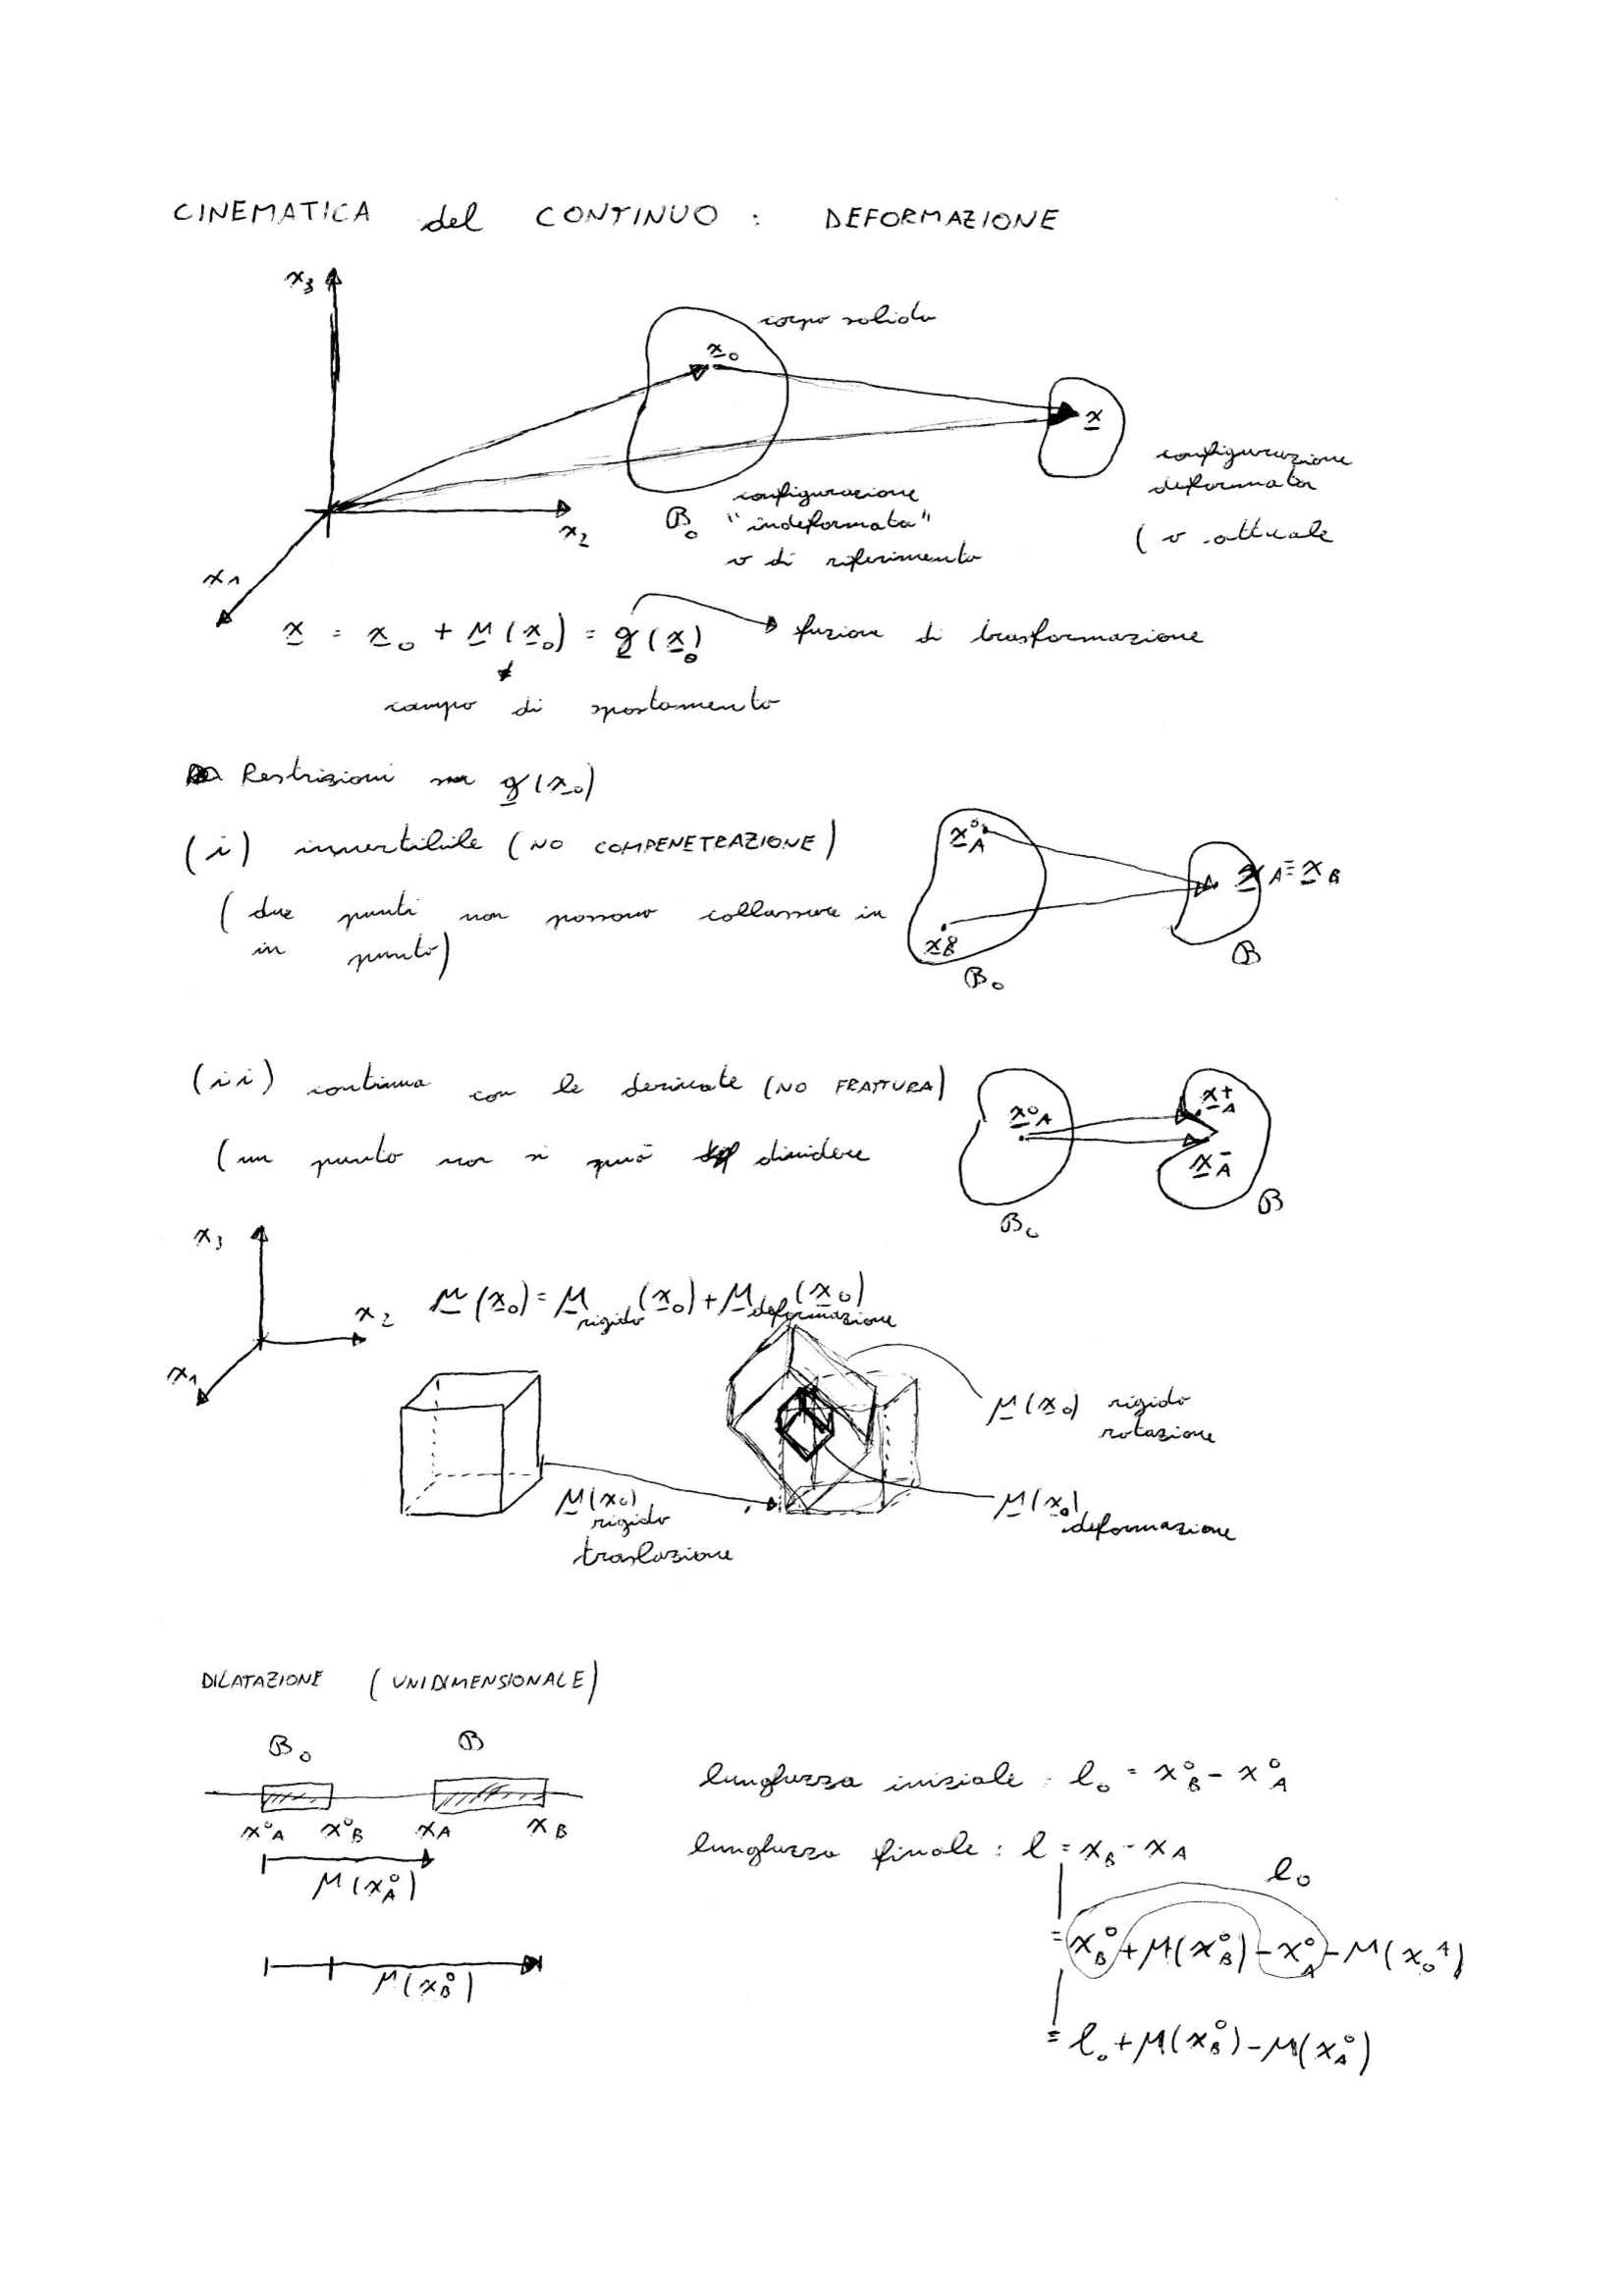 CINEMATICA del CONTINUO : DEFORMAZIONE
x₃
corpo solido
x̲₀
x̲
configurazione
deformata
(o attuale
configurazione
B₀ "indeformata"
o di riferimento
x₂
x₁
x̲ = x̲₀ + u̲(x̲₀) = g̲(x̲₀) → funzione di trasformazione
campo di spostamento
Restrizioni su g̲(x̲₀)
(i) invertibile (NO COMPENETRAZIONE)
(due punti non possono collassare in
in punto)
x̲°A
x̲A ≡ x̲B
x̲°B
B₀
B
(ii) continua con le derivate (NO FRATTURA)
(un punto non si può dividere
x̲°A
x̲⁺A
x̲⁻A
B₀
B
x₃
x₂
x₁
u̲(x̲₀) = u̲rigido(x̲₀) + u̲deformazione(x̲₀)
u̲(x̲₀) rigido
rotazione
u̲(x₀)
rigido
traslazione
u̲(x̲₀) deformazione
DILATAZIONE (UNIDIMENSIONALE)
B₀ B
x°A x°B xA xB
u(x°A)
u(x°B)
lunghezza iniziale : l₀ = x°B - x°A
lunghezza finale : l = xB - xA
l₀
= x°B + u(x°B) - x°A - u(x₀ᴬ)
= l₀ + u(x°B) - u(x°A)